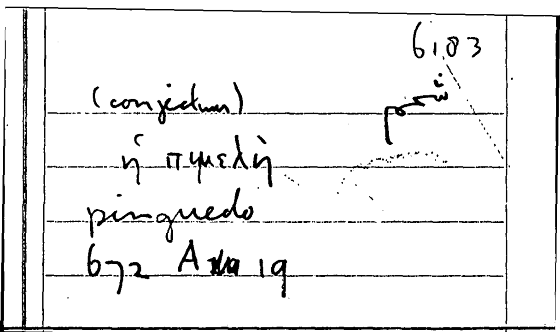 6183
(conjectur)
ἡ πιμελή
pinguedo
672 A 19